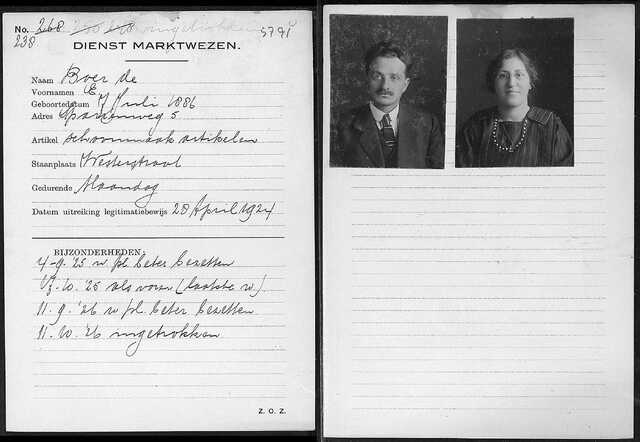 No. 268 250 248 ingetrokken 579 I
238
DIENST MARKTWEZEN.
Naam Boer de
Voornamen E.
Geboortedatum 7 Juli 1886
Adres 5
Artikel schoonmaak artikelen
Staanplaats Westerstraat
Gedurende Maandag
Datum uitreiking legitimatiebewijs 28 April 1924
BIJZONDERHEDEN:
4-9.'25 w. pl. beter bezetten
10.'25 als voren (laatste w.)
11.9.'26 w pl. beter bezetten
11.10.'26 ingetrokken
Z. O. Z.